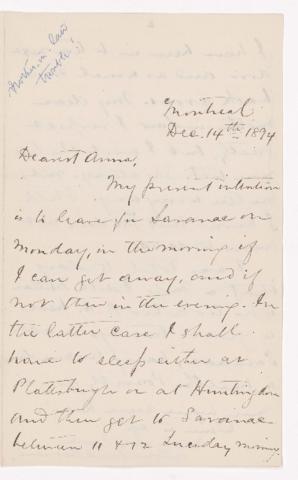 Mother-in-law
trouble!
Montreal
Dec. 14th 1894
Dearest Anna,
My present intention
is to leave for Saranac on
Monday, in the morning if
I can get away, and if
not then in the evening. In
the latter case I shall
have to sleep either at
Plattsburgh or at Huntingdon
and then get to Saranac
between 11 & 12 Tuesday morning.